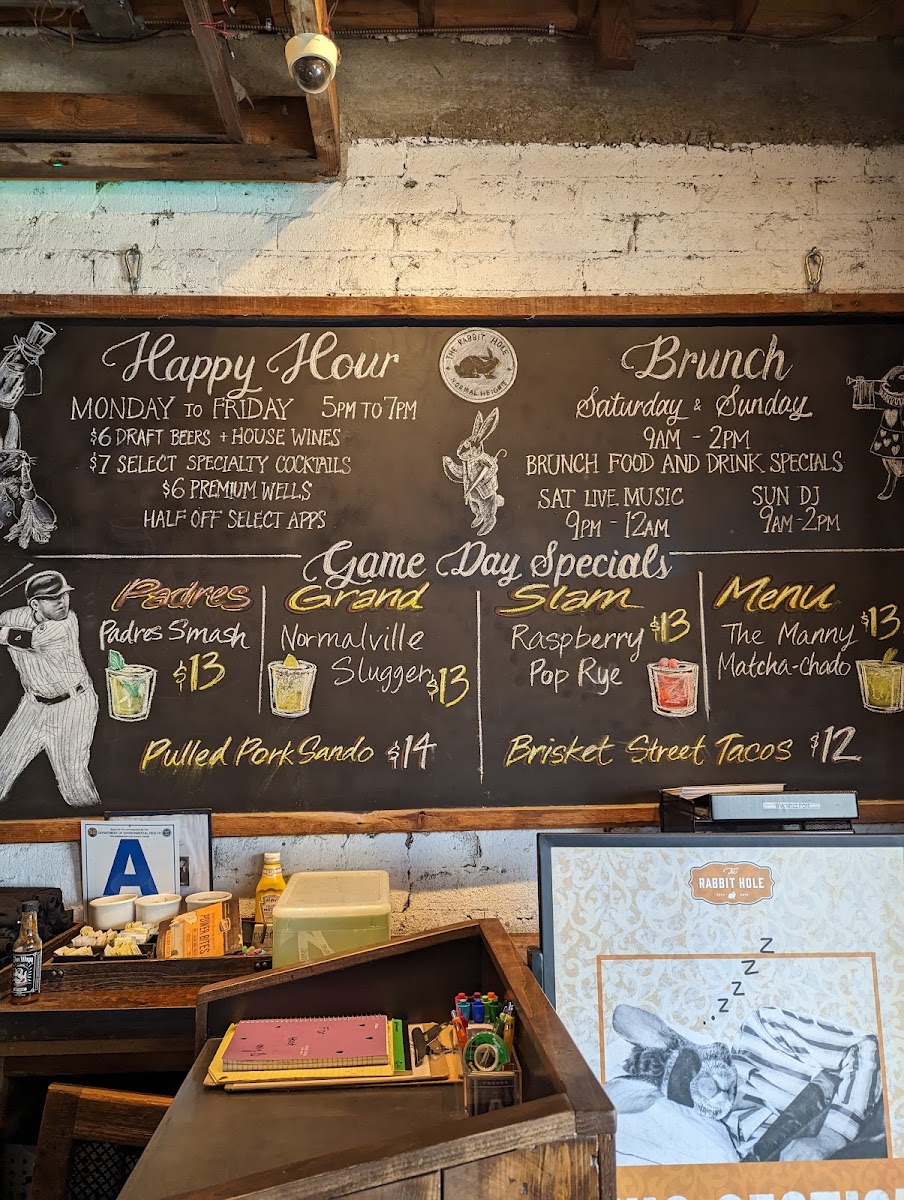 Happy Hour
MONDAY TO FRIDAY 5PM TO 7PM
$6 DRAFT BEERS + HOUSE WINES
$7 SELECT SPECIALTY COCKTAILS
$6 PREMIUM WELLS
HALF OFF SELECT APPS
THE RABBIT HOLE
NORMAL HEIGHTS
Brunch
Saturday & Sunday
9AM - 2PM
BRUNCH FOOD AND DRINK SPECIALS
SAT LIVE MUSIC
9PM - 12AM
SUN DJ
9AM-2PM
Game Day Specials
Padres Grand Slam Menu
Padres Smash
$13
Normalville
Slugger $13
Raspberry $13
Pop Rye
The Manny $13
Matcha-chado
Pulled Pork Sando $14
Brisket Street Tacos $12
DEPARTMENT OF ENVIRONMENTAL HEALTH
A
POWER BITES
The
RABBIT HOLE
Z
Z
Z
Z